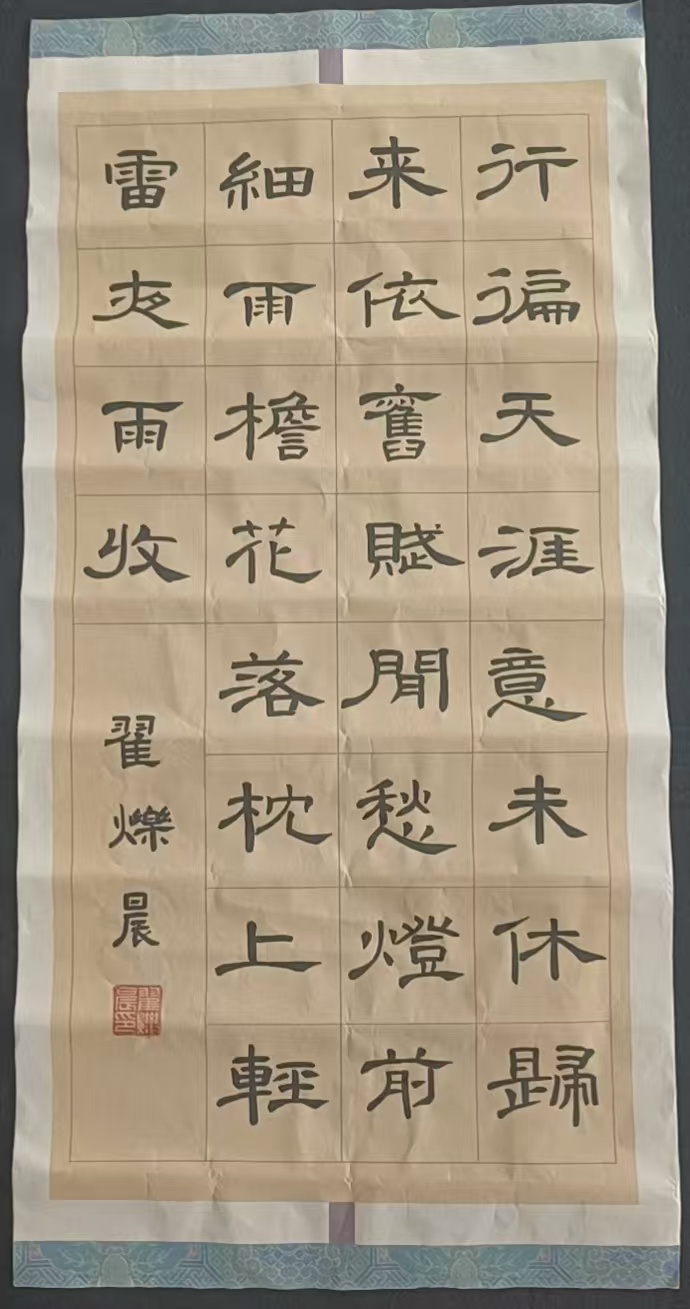 行徧天涯意未休歸
来依舊賦閒愁燈前
細雨檐花落枕上輕
雷夜雨收
翟爍晨
翟爍晨印